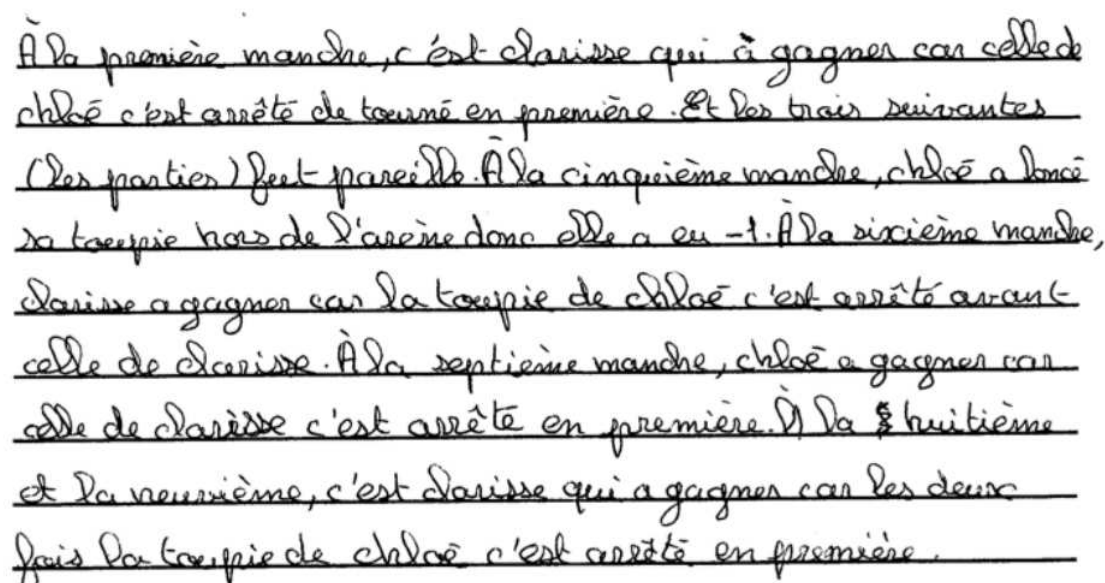 À la première manche, c'est clarisse qui à gagner car celle de
chloé c'est arrêté de tourné en première. Et les trois suivantes
(les parties) fut pareille. À la cinquième manche, chloé a lancé
sa toupie hors de l'arène donc elle a eu -1. À la sixième manche,
clarisse a gagner car la toupie de chloé c'est arrêté avant
celle de clarisse. À la septième manche, chloé a gagner car
celle de clarisse c'est arrête en première. À la huitième
et la neuvième, c'est clarisse qui a gagner car les deux
fois la toupie de chloé c'est arrêté en première.